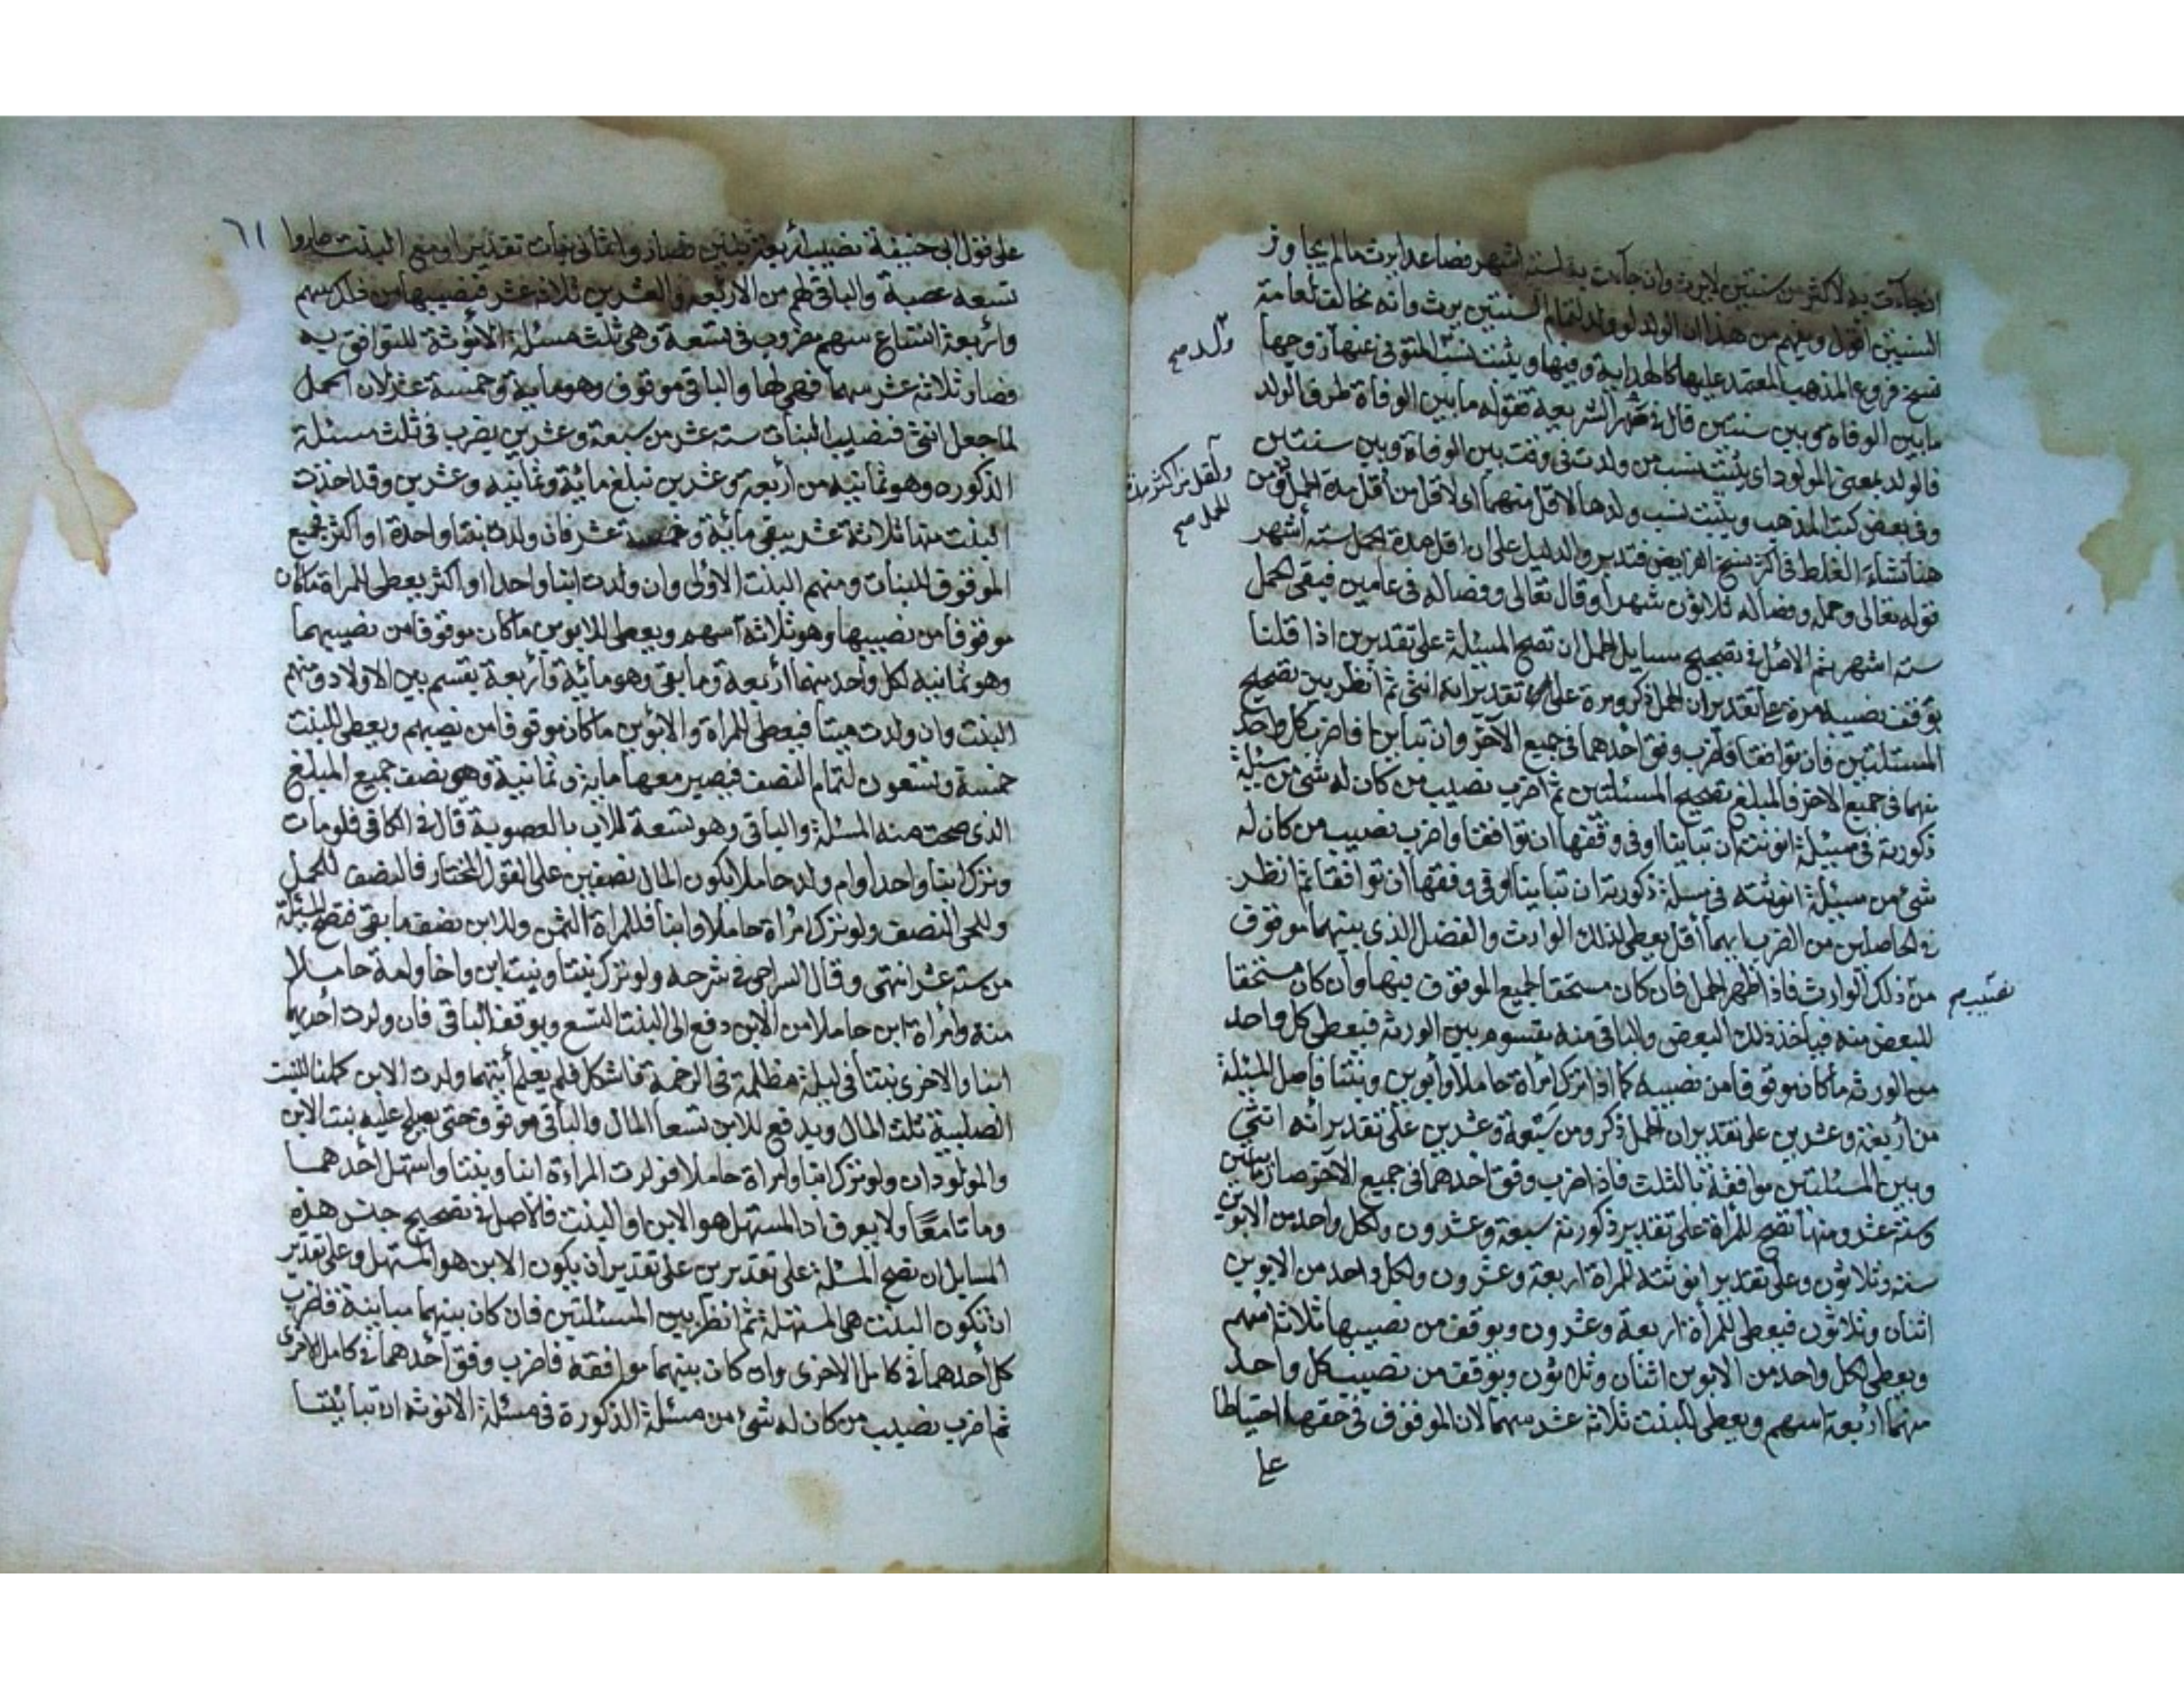 ان جاءت به لاكثر من سنتين لا يرث وان جاءت به لستة اشهر فصاعدا يرث مالم يجاوز
السنتين اقول ويفهم من هذا ان الولد لو ولد لتمام السنتين يرث وانه مخالف لعامة
نسخ فروع المذهب المعتمد عليها كالهداية وفيها ويثبت نسب المتوفى عنها زوجها
ولد صح
ما بين الوفاة وبين سنتين قال في الشريعة فقوله ما بين الوفاة ظرف الولد
فالولد بمعنى المولود اى يثبت نسب من ولدت في وقت بين الوفاة وبين سنتين
وفي بعض كتب المذهب ويثبت نسب ولدها لاقل منهما اى لاقل من أقل مدة الحمل ومن
ولقل من اكثر مدة
الحمل صح
هنا نشاء الغلط في اكثر نسخ الفرايض فتدبر والدليل على ان اقل مدة الحمل ستة أشهر
قوله تعالى وحمله وفصاله ثلاثون شهرا وقال تعالى وفصاله في عامين فبقى للحمل
ستة اشهر ثم الاصل في تصحيح مسايل الحمل ان تصح المسئلة على تقديرين اذا قلنا
يوقف نصيبه مرة على تقدير ان الحمل ذكر ومرة على تقدير انه انثى ثم انظر بين تصحيح
المسئلتين فان توافقتا فاضرب وفق احدهما في جميع الآخر وان تباينا فاضرب كل واحد
منهما في جميع الاخر فالمبلغ تصحيح المسئلتين ثم اضرب نصيب من كان له شئ من مسئلة
ذكورته في مسئلة انوثته ان تباينتا او في وفقها ان توافقتا واضرب نصيب من كان له
شئ من مسئلة انوثته في مسئلة ذكورته ان تباينتا او في وفقها ان توافقتا ثم انظر
في الحاصلين من الضرب ايهما أقل يعطى لذلك الوارث والفضل الذى بينهما موقوف
من ذلك الوارث فاذا ظهر الحمل فان كان مستحقا لجميع الموقوف فبها وان كان مستحقا
نصيب صح
للبعض منه فياخذ ذلك البعض والباقى منه يقسوم بين الورثة فيعطى كل واحد
من الورثة ما كان موقوفا من نصيبه كما اذا ترك امراة حاملا وأبوين وبنتا فاصل المسئلة
من أربعة وعشرين على تقدير ان الحمل ذكر ومن سبعة وعشرين على تقدير انه انثى
وبين المسئلتين موافقة بالثلث فاذا ضرب وفق احدهما في جميع الآخر صار مائتين
وستة عشر ومنها تصح للمراة على تقدير ذكورته سبعة وعشرون ولكل واحد من الابوين
ستة وثلاثون وعلى تقدير انوثته للمراة اربعة وعشرون ولكل واحد من الابوين
اثنان وثلاثون فيعطى للمرأة اربعة وعشرون ويوقف من نصيبها ثلاثة اسهم
ويعطى لكل واحد من الابوين اثنان وثلاثون ويوقف من نصيب كل واحد
منهما أربعة اسهم ويعطى للبنت ثلاثة عشر سهما لان الموقوف في حقها احتياطا
على
٦١
على قول ابى حنيفة نصيب أربعة بنين وتقدير ان مع البنت صاروا
تسعة عصبة والباقى لهم من الاربعة والعشرين ثلاثة عشر فنصيبها من ذلك سهم
وأربعة اتساع سهم مضروب في تسعة وهى ثلث مسئلة الانوثة للتوافق به
فصار ثلاثة عشر سهما فهى لها والباقى موقوف وهو ماية وخمسة عشر لان الحمل
لما جعل انثى فنصيب البنات ستة عشر من سبعة وعشرين يضرب في ثلث مسئلة
الذكوره وهو ثمانية من أربعة وعشرين تبلغ مائة وثمانية وعشرين وقد اخذت
البنت منها ثلاثة عشر يبقى مائة وخمسة عشر فان ولدت بنتا واحدة او اكثر فجميع
الموقوف للبنات ومنهم البنت الاولى وان ولدت ابنا واحدا او اكثر يعطى للمراة ما كان
موقوفا من نصيبها وهو ثلاثة اسهم ويعطى للابوين ما كان موقوفا من نصيبهما
وهو ثمانية لكل واحد منهما أربعة وما بقى وهو مائة وأربعة يقسم بين الاولاد ومنهم
البنت وان ولدت ميتا فيعطى للمراة والابوين ما كان موقوفا من نصيبهم ويعطى للبنت
خمسة وتسعون لتمام النصف فيصير معها ماية وثمانية وهو نصف جميع المبلغ
الذى صحت منه المسئلة والباقى وهو تسعة للاب بالعصوبة قال في الكافى فلو مات
وترك ابنا واحدا وام ولد حاملا يكون المال نصفين على القول المختار فالنصف للحمل
وللحى النصف ولو ترك امراة حاملا وابنا فللمراة الثمن وللابن نصف ما بقى فتصح المسئلة
من ستة عشر انتهى وقال السراجى في شرحه ولو ترك بنتا وبنت ابن واخا وامة حاملا
منه وامراة ابن حاملا من الابن دفع الى البنت التسع ويوقف الباقى فان ولدت أحديهما
ابنا والاخرى بنتا في ليلة مظلمة في الزحمة فاشكل فلم يعلم أيتهما ولدت الابن كملنا للبنت
الصلبية ثلث المال ويدفع للابن تسعا المال والباقى موقوف حتى يصطلح عليه بنت الابن
والمولودان ولو ترك ابنا وامراة حاملا فولدت المراءة ابنا وبنتا واستهل احدهما
وماتا معًا ولا يعرف ان المستهل هو الابن او البنت فالاصل في تصحيح جنس هذه
المسايل ان تصح المسئلة على تقديرين على تقدير ان يكون الابن هو المستهل وعلى تقدير
ان تكون البنت هى المستهلة ثم انظر بين المسئلتين فان كان بينهما مباينة فاضرب
كل أحدهما في كامل الاخرى وان كان بينهما موافقة فاضرب وفق أحدهما في كامل الاخرى
ثم اضرب نصيب من كان له شئ من مسئلة الذكورة في مسئلة الانوثة ان تباينتا